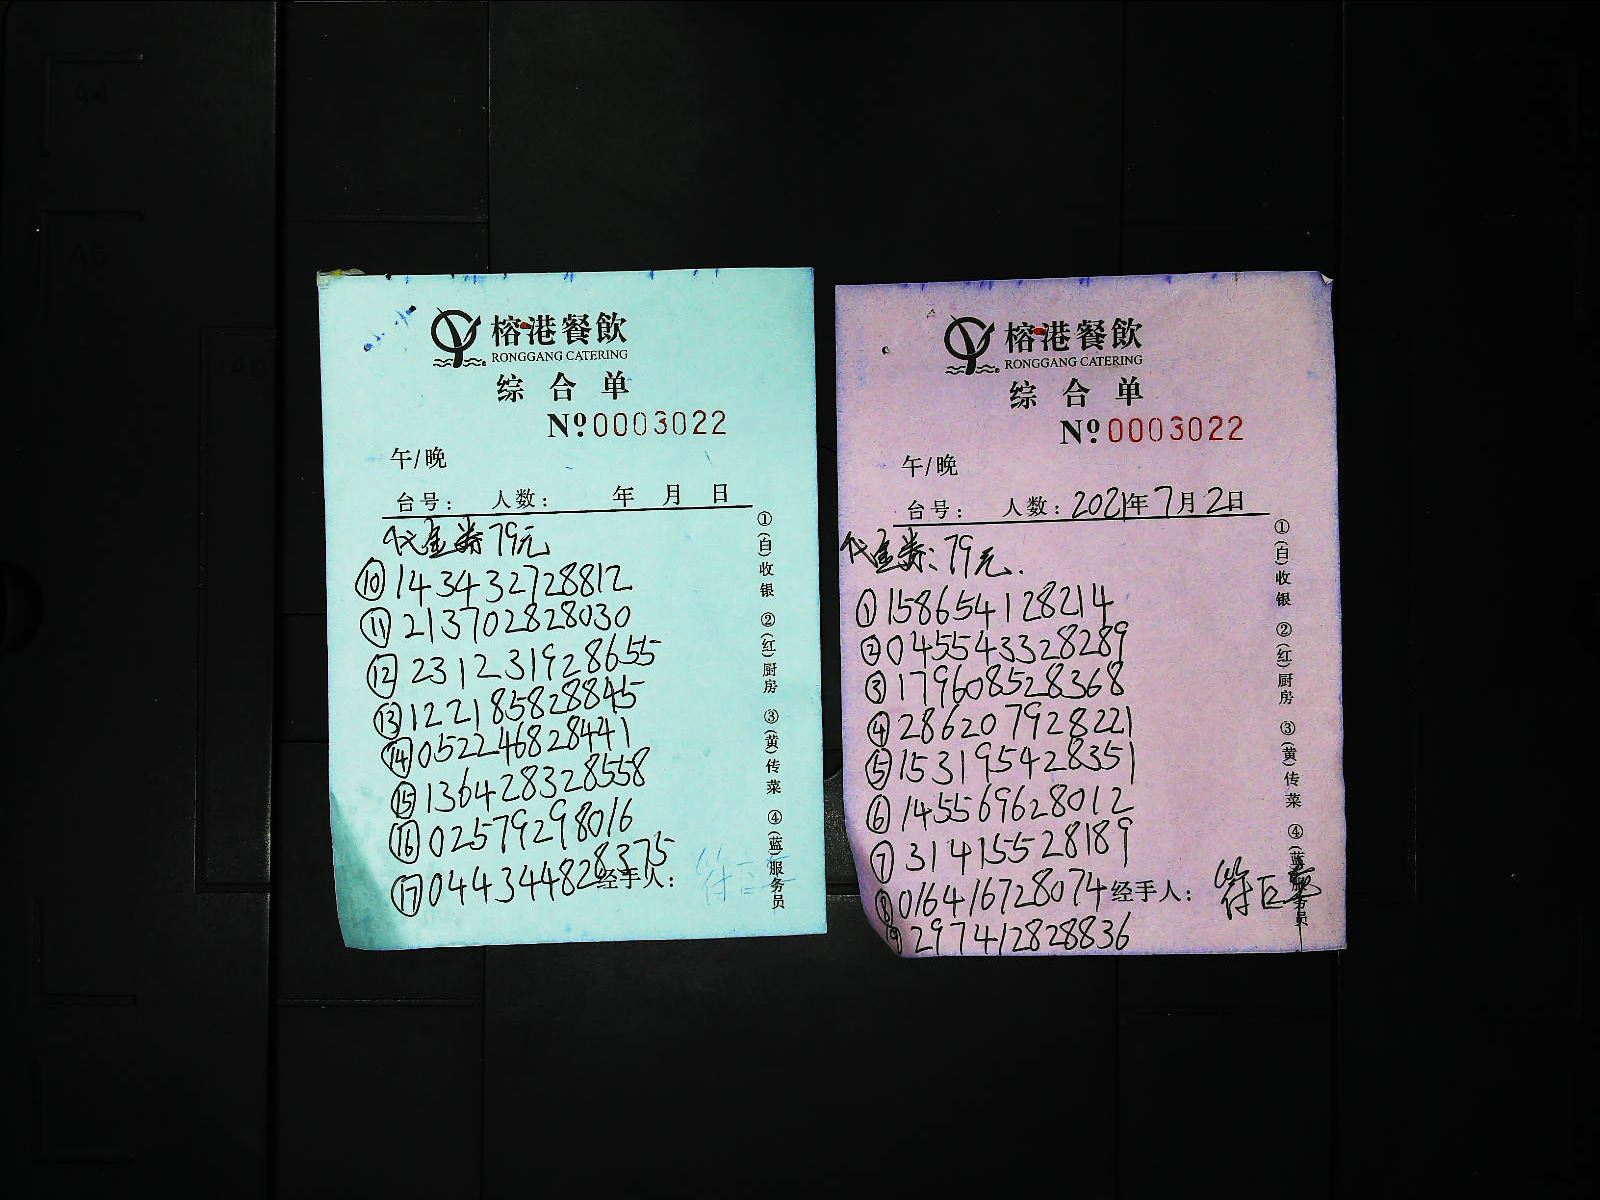 榕港餐飲
RONGGANG CATERING
综合单
Nº0003022
午/晚
台号: 人数: 年 月 日
代金券79元
⑩143432728812
⑪213702828030
⑫231231928655
⑬122185828845
⑭052246828441
⑮136428328558
⑯02579298016
⑰044344828375
经手人:
①(白)收银 ②(红)厨房 ③(黄)传菜 ④(蓝)服务员
榕港餐飲
RONGGANG CATERING
综合单
Nº0003022
午/晚
台号: 人数: 2021年7月2日
代金券:79元.
①158654128214
②045543328289
③179608528368
④286207928221
⑤153195428351
⑥145569628012
⑦314155528189
⑧016416728074
⑨297412828836
经手人:
①(白)收银 ②(红)厨房 ③(黄)传菜 ④(蓝)服务员